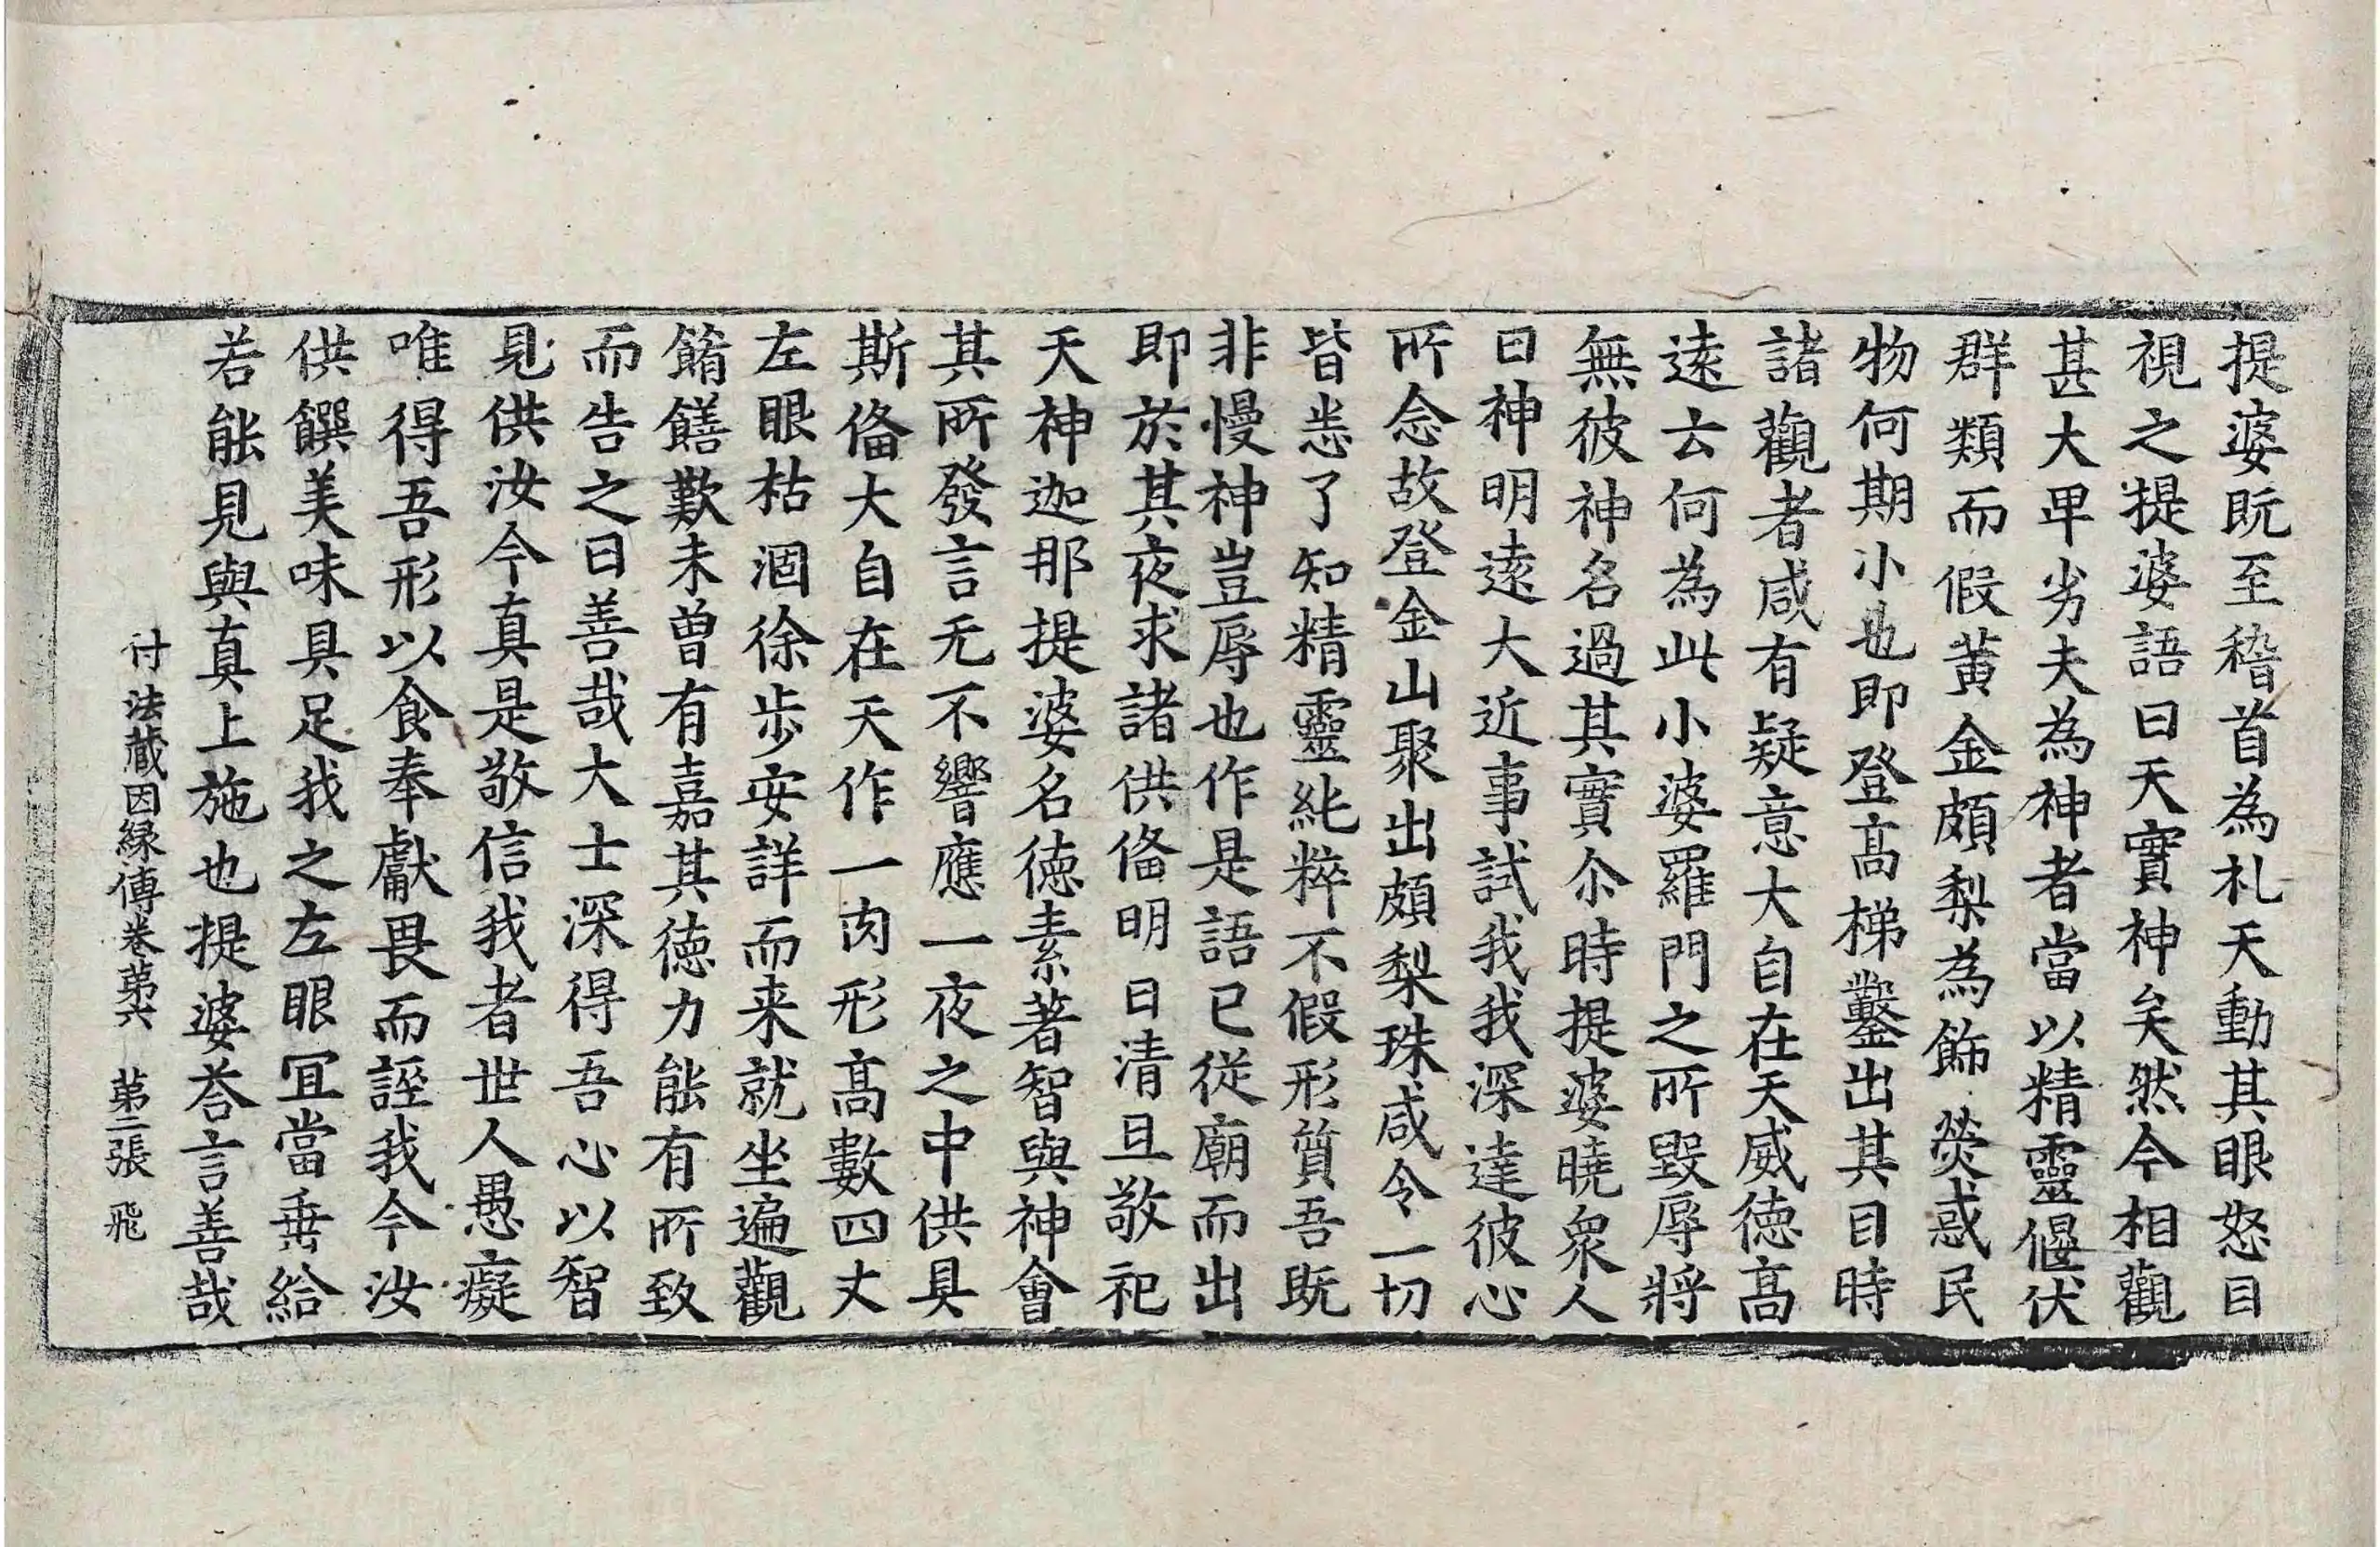 提婆既至稽首為札天動其眼怒目
視之提婆語曰天實神矣然今相觀
甚大早劣夫為神者當以精靈偃伏
群類而假黃金頗梨為飾熒惑民
物何期小也即登髙梯鑿出其目時
諸觀者咸有疑意大自在天威徳髙
遠云何為此小婆羅門之所毀辱將
無彼神名過其實尒時提婆曉衆人
曰神明遠大近事試我我深達彼心
所念故登金山聚出頗梨珠咸令一切
皆悉了知精靈純粹不假形質吾既
非慢神豈辱也作是語已從廟而出
即於其夜求諸供俻明日清旦敬祀
天神迦那提婆名徳素著智與神會
其所發言无不響應一夜之中供具
斯俻大自在天作一肉形髙數四丈
左眼枯涸徐步安詳而来就坐遍觀
餚饍歎未曽有嘉其徳力能有所致
而告之曰善哉大士深得吾心以智
見供汝今真是敬信我者世人愚癡
唯得吾形以食奉獻畏而誣我今汝
供饌美味具足我之左眼冝當垂給
若能見與真上施也提婆荅言善哉
付法藏因縁傳卷苐六　苐二張　飛